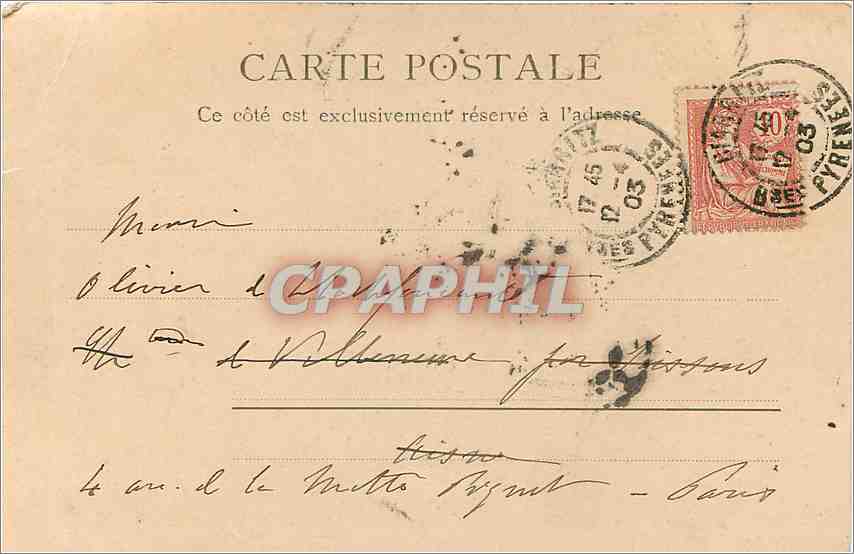 CARTE POSTALE
Ce côté est exclusivement réservé à l'adresse
10
BIARRITZ
17 45
12 -4
03
BSES PYRENEES
BIARRITZ
17 45
12 -4
03
BSES PYRENEES
Olivier d
CRAPHIL
d Villeneuve par Soissons
Aisne
4 av. d la Motte Piquet - Paris